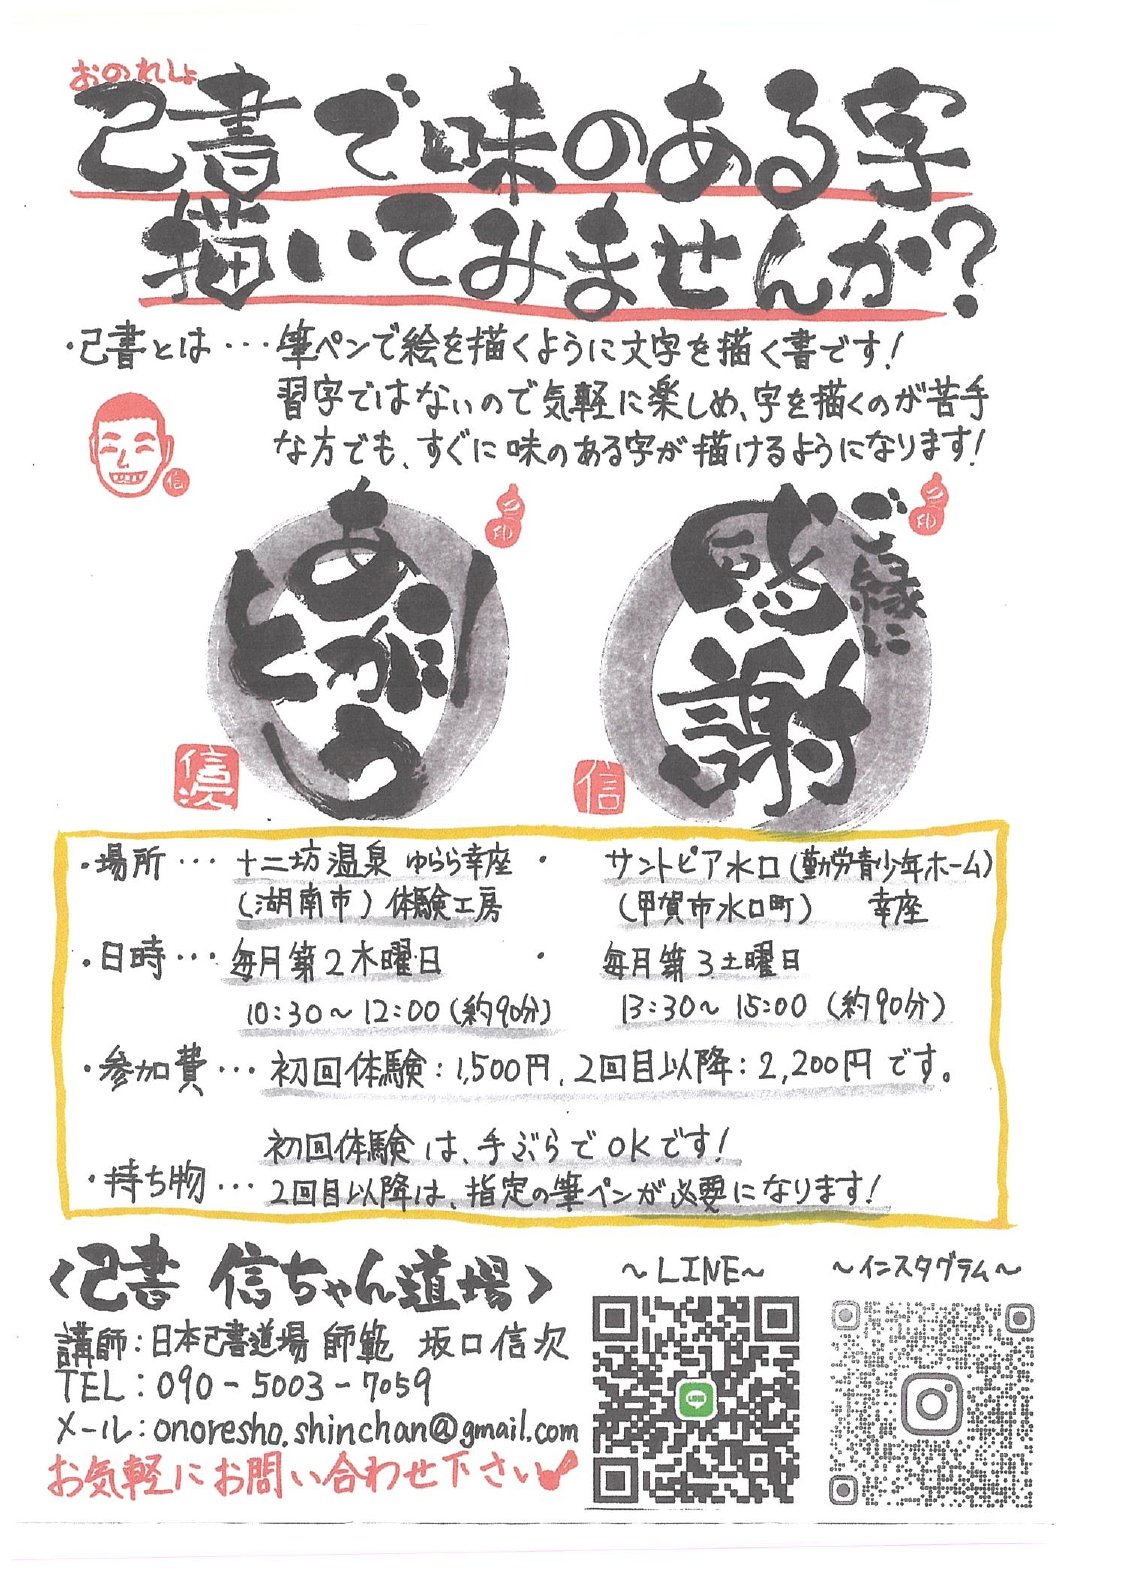 おのれしょ
己書で味のある字
描いてみませんか?
・己書とは・・・筆ペンで絵を描くように文字を描く書です!
習字ではないので気軽に楽しめ、字を描くのが苦手
な方でも、すぐに味のある字が描けるようになります!
信
ありがとう
信次
ご縁に
感謝
信
・場所・・・十二坊温泉 ゆらら幸座
(湖南市)体験工房
・サントピア水口(勤労青少年ホーム)
(甲賀市水口町) 幸座
・日時・・・毎月第2木曜日
10:30~12:00(約90分)
・毎月第3土曜日
13:30~15:00(約90分)
・参加費・・・初回体験:1,500円、2回目以降:2,200円です。
初回体験は、手ぶらでOKです!
・持ち物・・・2回目以降は、指定の筆ペンが必要になります!
<己書 信ちゃん道場>
講師:日本己書道場 師範 坂口信次
TEL:090-5003-7059
メール:onoresho.shinchan@gmail.com
お気軽にお問い合わせ下さい!
~LINE~
LINE
~インスタグラム~